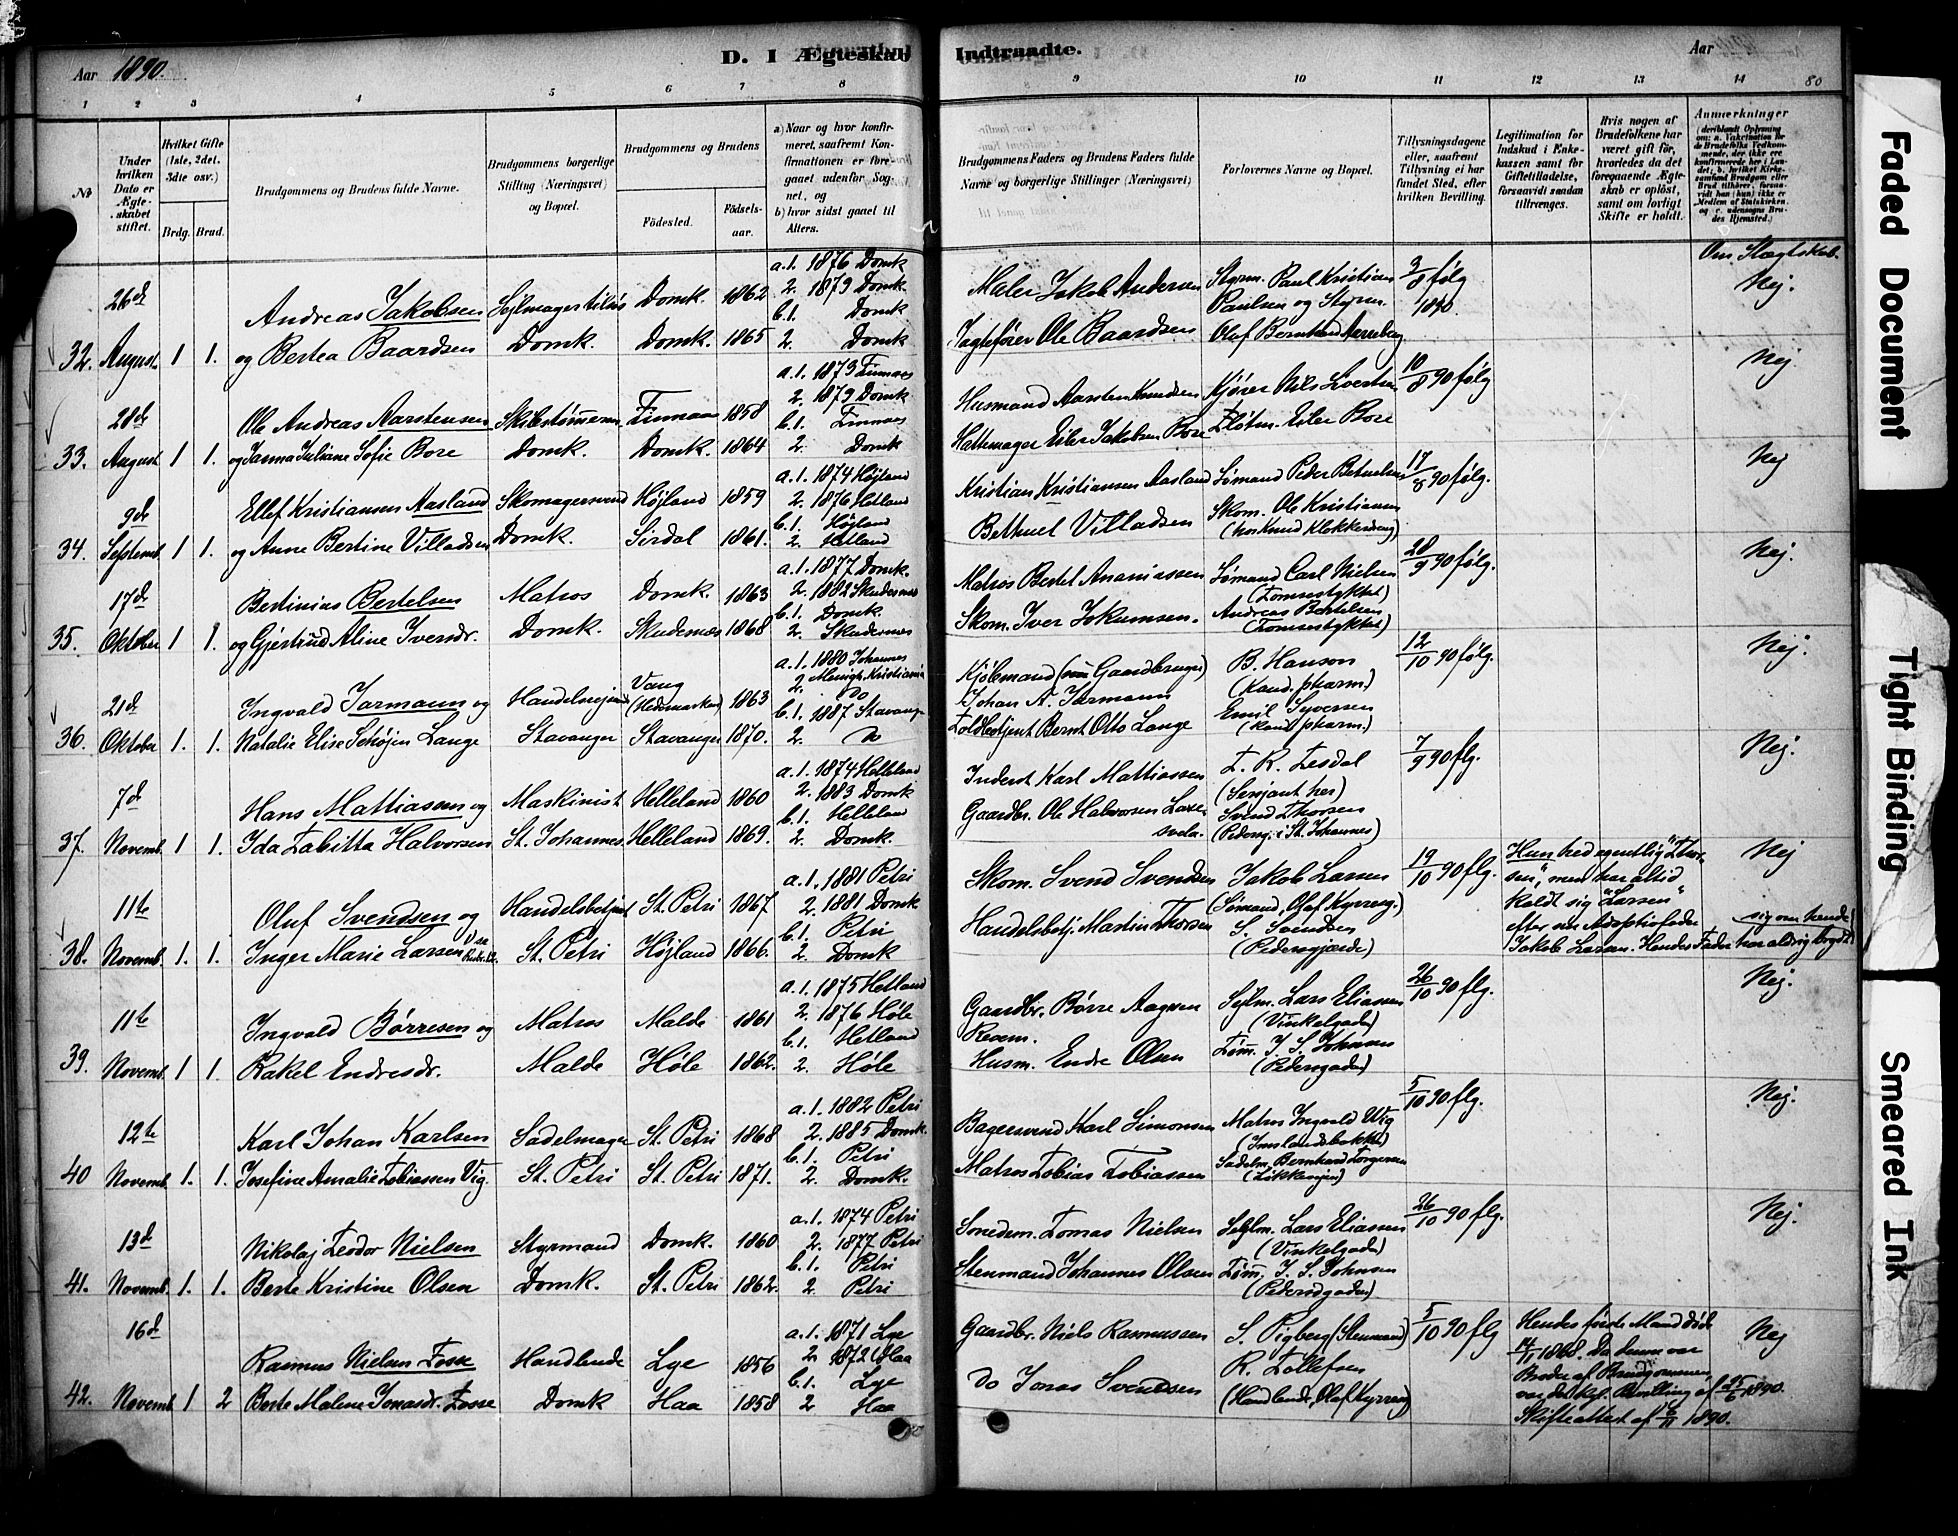 Aar 1890.
D. I Ægteskab Indtraadte.
Aar
80
1 2 3 4 5 6 7 8 9 10 11 12 13 14
№
Under hvilken Dato er Ægteskabet stiftet.
Hvilket Gifte (1ste, 2det, 3die osv.)
Brdg. Brud.
Brudgommens og Brudens fulde Navne.
Brudgommens borgerlige Stilling (Næringsvei) og Bopæl.
Brudgommens og Brudens
Födested. Födselsaar.
a) Naar og hvor konfirmeret, saafremt Konfirmationen er foregaaet udenfor Sognet, og
b) hvor sidst gaaet til Alters.
Brudgommens Faders og Brudens Faders fulde Navne og borgerlige Stillinger (Næringsvei)
Forlovernes Navne og Bopæl.
Tillysningsdagene eller, saafremt Tillysning ei har fundet Sted, efter hvilken Bevilling.
Legitimation for Indskud i Enkekassen samt for Giftetilladelse, forsaavidt saadan tiltrænges.
Hvis nogen af Brudefolkene har været gift för, hvorledes da det foregaaende Ægteskab er oplöst, samt om lovligt Skifte er holdt.
Anmærkninger
Om Slægtskab.
32. 26de August 1 1.
Andreas Jakobsen
og Bertea Baardsen
Domk.
Domk. 1862
Domk. 1865
a. 1. 1876 Domk
2. 1879 Domk.
b. 1. Domk
2. Domk
Maler Jakob Andersen
Jagtefører Ole Baardsen
Styrm. Paul Kristian
Paulsen og Styrm.
3/8 følg 1890.
Nej.
33. 28de August 1 1.
Ole Andreas Aarstensen
og Janna Juliane Sofie Bore
Skibstømmerm
Domk.
Finnaas 1858
Domk. 1864
a. 1. 1873 Finnaas
2. 1879 Domk
b. 1. Finnaas
2. Domk
Husmand Aarsten Knudsen
Hattemager Eiler Jakobsen Bore
Fløtm. Eiler Bore
10/8 90 følg
Nej.
34. 9de Septemb. 1 1.
Ellef Kristiansen Aasland
og Anne Bertine Villadsen
Skomagersvend
Domk.
Højland 1859
Sirdal 1861.
a. 1. 1874 Højland
2. 1876 Hetland
b. 1. Højland
2. Hetland
Kristian Kristiansen Aasland
Bethuel Villadsen
Sømand Peder Betuelsen
Skom. Ole Kristiansen
17/8 90 følg.
Nej
35. 17de Oktober 1 1.
Bertinius Bertelsen
og Gjertrud Aline Iversdr.
Matros
Domk.
Domk. 1863
Skudenæs 1868
a. 1. 1877 Domk.
2. 1882 Skudesnæs
b. 1. Domk.
2. Skudenæs
Matros Bertel Ananiassen
Skom. Iver Jokumsen.
Sømand Carl Nielsen
(Tomsestykket)
Andreas Bertelsen
(Tomsestykket)
28/9 90 følg.
Nej.
36. 21de Oktober 1. 1.
Ingvald Jarmann og
Natalie Elise Schøjen Lange
Stavanger
Vang
(Hedemarken) 1863
Stavanger 1870.
a. 1. 1880 Johannes
Menigh. Kristiania
2. Do
b. 1. 1887 Stavanger
2. Do
Kjøbmand (nu Gaardbruger)
Johan A. Jarmann
Toldbetjent Bernt Otto Lange
B. Hanson
(Kand. pharm.)
Emil Syversen
(kand pharm.)
12/10 90 følg.
Nej.
37. 7de Novemb. 1 1.
Hans Mattiassen og
Ida Tabitta Halvorsen
Maskinist
St. Johannes
Helleland 1860
Helleland 1869.
a. 1. 1874 Helleland
2. 1883 Domk
b. 1. Helleland
2. Domk.
Inderst Karl Mattiassen
Gaardbr. Ole Halvorsen
T. R. Tesdal
(Sersjant her)
Svend Thorsen
(Pedersgj. i St. Johannes)
7/9 90 flg.
Nej.
38. 11te Novemb. 1. 1.
Oluf Svendsen og
Inger Marie Larsen
Handelsbetjent
St. Petri
St. Petri 1867
Højland 1866.
a. 1. 1881 Petri
2. 1881 Domk
b. 1. Petri
2. Domk
Skom. Svend Svendsen
Handelsbetj. Martin Thorsen
Jakob Larsen
(Sømand, Olaf Kyrreg.)
S. Svendsen
(Pedersgjærde)
19/10 90 flg.
Hun hed egentlig "Thorsen", men har altid
kaldt sig "Larsen"
efter sin Adoptivfader
Jakob Larsen. Hendes Fader har aldrig brydt
sig om hende!
Nej
39. 11te Novemb. 1 1.
Ingvald Børresen og
Rakel Endresdr.
Matros
Malde
Malde 1861
Høle 1862.
a. 1. 1875 Hetland
2. 1876 Høle
b. 1. Hetland
2. Høle
Gaardbr. Børre Aagesen
Husm. Endre Olsen
Sejlm. Lars Eliassen
(Vinkelgade)
Tøm. J. S. Johnsen
(Pedersgaden)
26/10 90 flg.
Nej.
40 12te Novemb. 1. 1.
Karl Johan Karlsen
Josefine Amalie Tobiassen Vig.
Sadelmager
St. Petri
St. Petri 1868
St. Petri 1871.
a. 1. 1882 Petri
2. 1885 Domk.
b. 1. Petri
2. Domk.
Bagersvend Karl Simonsen
Matros Tobias Tobiassen
Matros Ingvald Vig
Sadelm. Bernhard Torgersen
(Løkkevejen)
5/10 90 flg.
Nej.
41. 13de Novemb. 1. 1.
Nikolaj Teodor Nielsen
Berte Kristine Olsen
Styrmand
Domk.
Domk. 1860
St. Petri 1862.
a. 1. 1874 Petri
2. 1877 Petri
b. 1. Petri
2 Petri
Snedm. Tomas Nielsen
Stenmand Johannes Olsen
Sejlm. Lars Eliassen
(Vinkelgade)
Tøm. J. S. Johnsen
(Pedersgaden)
26/10 90 flg.
Nej.
42. 16de Novemb. 1 2
Rasmus Nielsen Fosse
Berte Malene Jonasdr. Fosse
Handlende
Domk
Lye 1856
Haa 1858
a. 1. 1871 Lye
2. 1872 Haa
b. 1. Lye
2 Haa
Gaardbr. Niels Rasmussen
do Jonas Svendsen
S. Pigberg (Stenmand)
R. Tollefsen
(Handlende, Olaf Kyrreg)
5/10 90 flg
Hendes første Mand død
14/1 1868. Da denne var
Broder af Brudgommen,
var der kgl. Bevilling af 25/6 1890.
Skifteattest af 6/11 1890.
Nej
Faded Document
Tight Binding
Smeared Ink